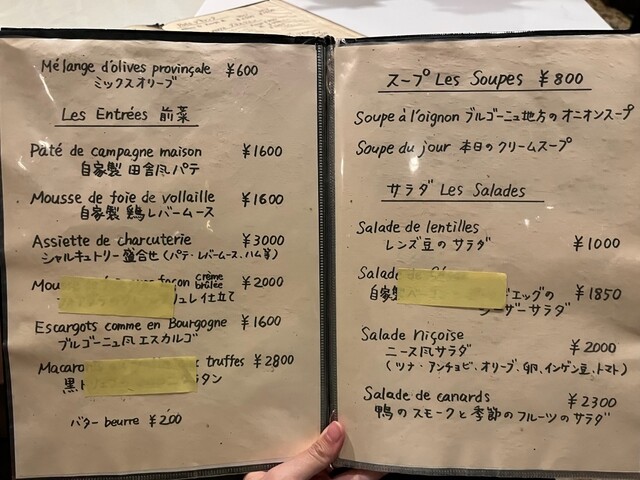 Mélange d'olives provinçale ¥600
ミックスオリーブ
Les Entrées 前菜
Pâté de campagne maison ¥1600
自家製 田舎風パテ
Mousse de foie de vollaille ¥1600
自家製 鶏レバームース
Assiette de charcuterie ¥3000
シャルキュトリー盛合せ(パテ・レバームース、ハム等)
façon crème brûlée ¥2000
仕立て
Escargots comme en Bourgogne ¥1600
ブルゴーニュ風 エスカルゴ
truffes ¥2800
黒
バター beurre ¥200
スープ Les Soupes ¥800
Soupe à l'oignon ブルゴーニュ地方の オニオンスープ
Soupe du jour 本日のクリームスープ
サラダ Les Salades
Salade de lentilles
レンズ豆のサラダ ¥1000
Salade
自家製 エッグの ¥1850
シーザーサラダ
Salade niçoise
ニース風サラダ ¥2000
(ツナ・アンチョビ、オリーブ、卵、インゲン豆、トマト)
Salade de canards ¥2300
鴨のスモークと季節のフルーツのサラダ